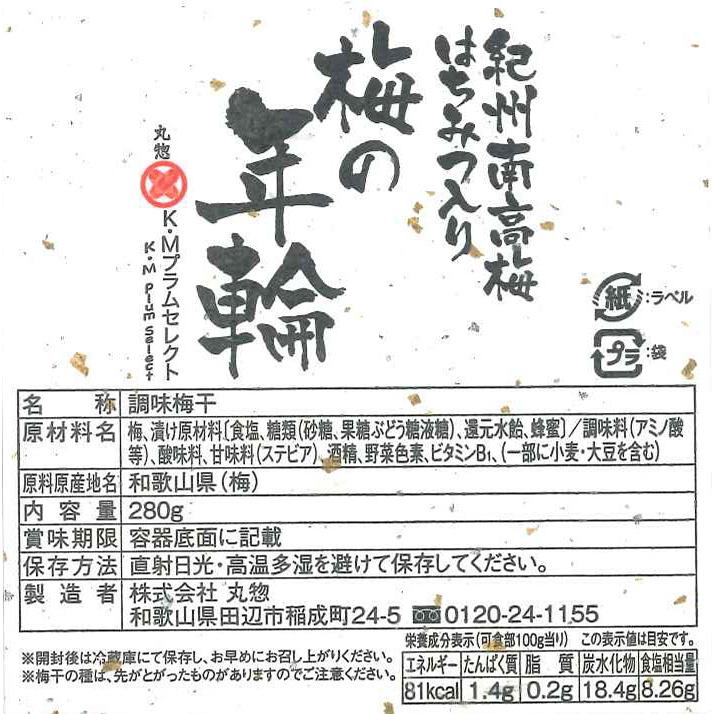 紀州南高梅
はちみつ入り
梅の
年輪
丸惣
K・Mプラムセレクト
K・M plum select
紙:ラベル
プラ:袋
名称 調味梅干
原材料名 梅、漬け原材料〔食塩、糖類(砂糖、果糖ぶどう糖液糖)、還元水飴、蜂蜜〕/調味料(アミノ酸
等)、酸味料、甘味料(ステビア)、酒精、野菜色素、ビタミンB₁、(一部に小麦・大豆を含む)
原料原産地名 和歌山県(梅)
内容量 280g
賞味期限 容器底面に記載
保存方法 直射日光・高温多湿を避けて保存してください。
製造者 株式会社 丸惣
和歌山県田辺市稲成町24-5 0120-24-1155
※開封後は冷蔵庫にて保存し、お早めにお召し上がりください。
※梅干の種は、先がとがったものがありますのでご注意ください。
栄養成分表示(可食部100g当り) この表示値は目安です。
エネルギー たんぱく質 脂質 炭水化物 食塩相当量
81kcal 1.4g 0.2g 18.4g 8.26g